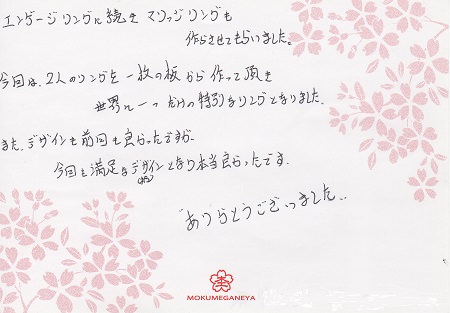 エンゲージリングに続きマリッジリングも
作らさせてもらいました。
今回は、2人のリングを一枚の板から作って頂き
世界に一つだけの特別なリングとなりました。
また、デザインも前回も良かったですが、
今回も満足なデザインとなり本当良かったです。
ありがとうございました..
MOKUMEGANEYA